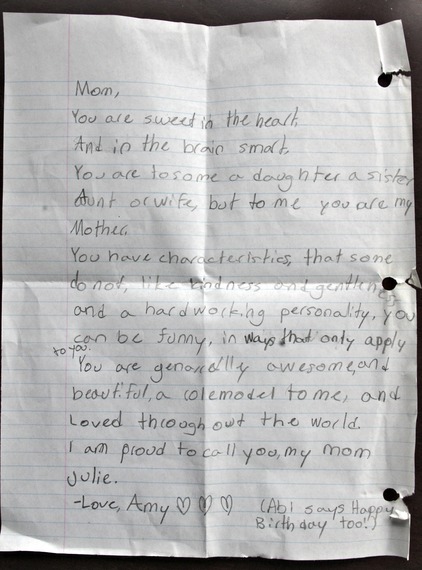 Mom,
You are sweet in the heart,
And in the brain smart,
You are to some a daughter a sister
Aunt or wife, but to me you are my
Mother.
You have characteristics, that some
do not, like kindness and gentleness
and a hardworking personality, you
can be funny, in ways that only apply
to you.
You are generally awesome, and
beautiful, a rolemodel to me, and
Loved through out the world.
I am proud to call you, my mom
Julie.
-Love, Amy ♡ ♡ ♡ (Abi says Happy
Birthday too!)